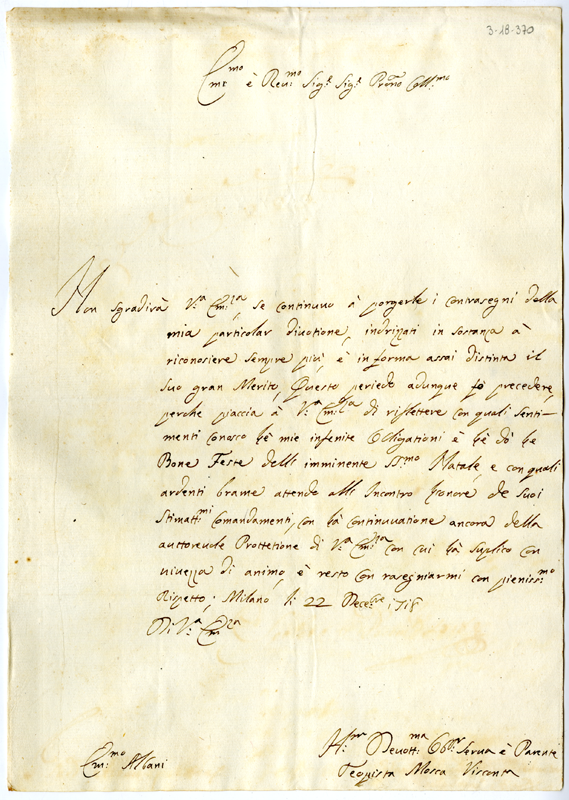 3-18-370
Em.mo è Reu.mo Sig.r Sig.r Pron̄o Coll.mo
Non sgradirà V.a Em.za, se continuuo à porgerle i contrasegni della
mia particolar diuotione, indrizati in sostanza à
riconosiere sempre più, è in forma assai distinta il
suo gran Merito, Questo periodo adunque fò precedere,
perche piaccia à V.a Em.za di riflettere con quali senti-
menti conosco lè mie infenite Obligationi è lè dò le
Bone Feste delli imminente SS.mo Natale, e con quali
ardenti brame attendo alli Incontro honore de suoi
Stimatt.mi Comandamenti, con là continuuatione ancora della
auttoreuole Prottetione di V.a Em.za con cui là suplico con
uiuezza di animo, è resto con rasegniarmi con pieniss.mo
Rispetto; Milano li 22 Dece.bre
Di V.a Em.za
Em.mo Albani
H.ma Deuott.ma Obb.ma Serua è Parente
Teopista Mosca Visconta